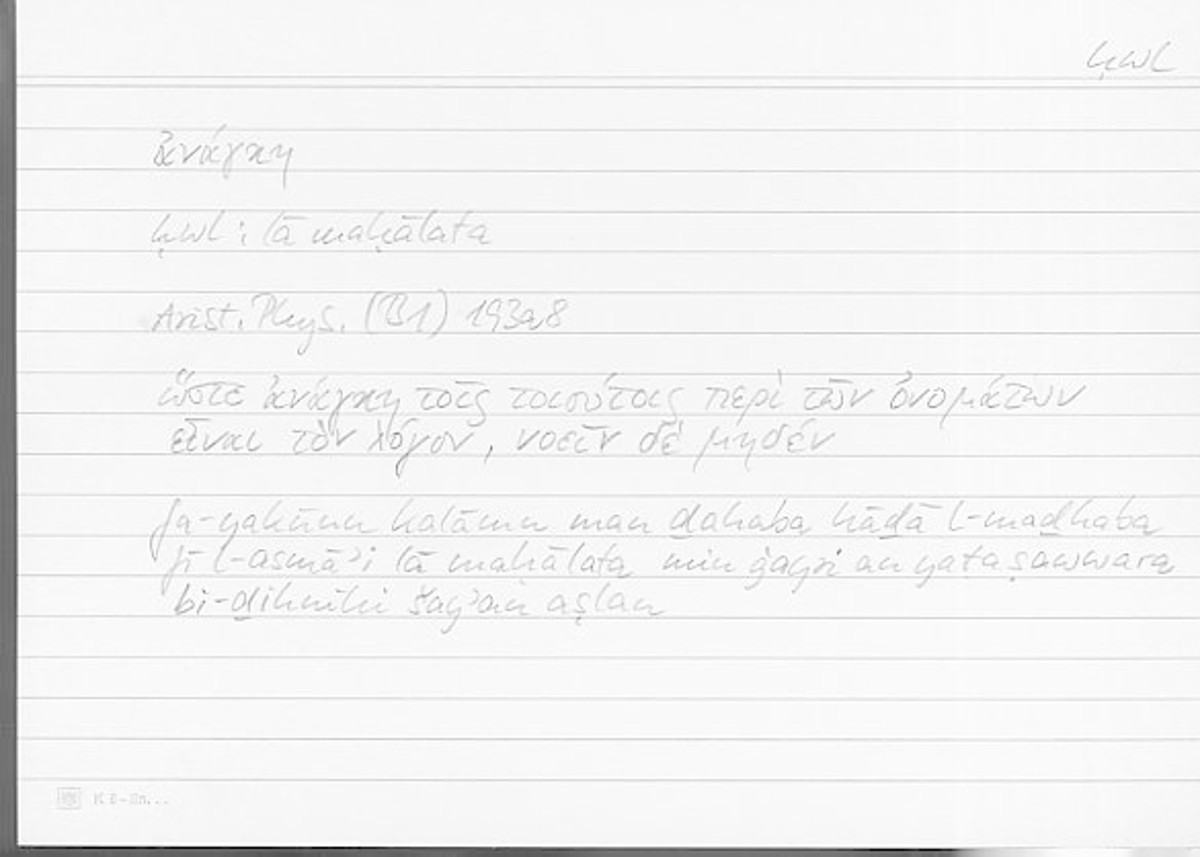 ḥwl
ἀνάγκη
ḥwl : lā maḥālata
Arist. Phys. (B1) 193a8
ὥστε ἀνάγκη τοῖς τοιούτοις περὶ τῶν ὀνομάτων
εἶναι τὸν λόγον, νοεῖν δὲ μηδέν
fa-yakūnu kalāmu man ḏahaba hāḏā l-maḏhaba
fī l-asmāʾi lā maḥālata min ġayri an yataṣawwara
bi-ḏihnihi šayʾan aṣlan